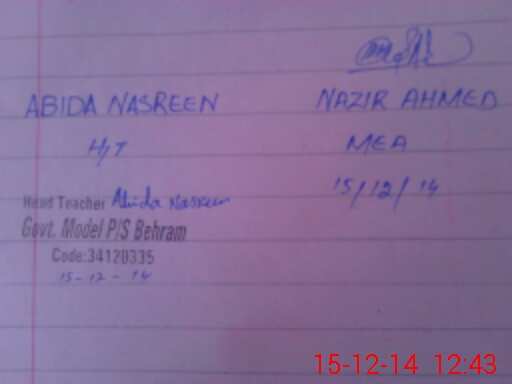 ABIDA NASREEN
H/T
Head Teacher Abida Nasreen
Govt. Model P/S Behram
Code:34120335
15-12-14
NAZIR AHMED
MEA
15/12/14
15-12-14 12:43